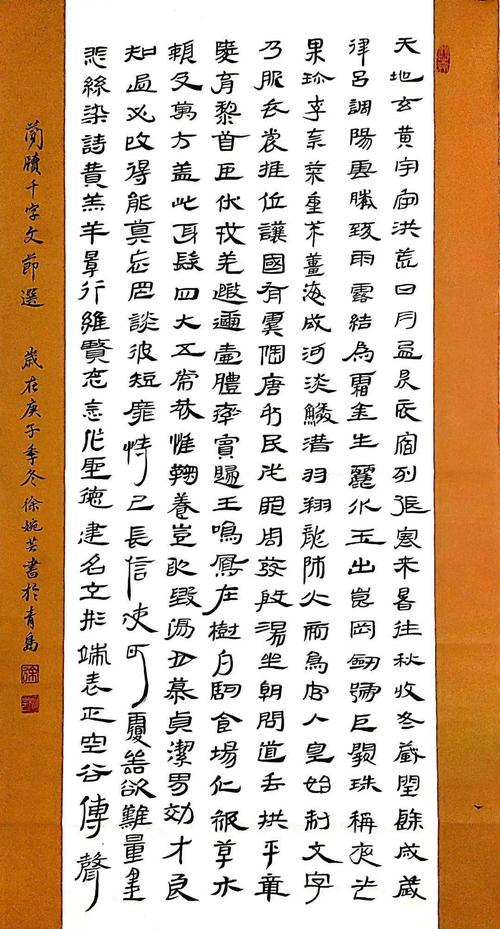 天地玄黃宇宙洪荒日月盈昃辰宿列張寒來暑往秋收冬藏閏餘成歲
律呂調陽雲騰致雨露結為霜金生麗水玉出崑岡劍號巨闕珠稱夜光
果珍李柰菜重芥薑海咸河淡鱗潛羽翔龍師火帝鳥官人皇始制文字
乃服衣裳推位讓國有虞陶唐弔民伐罪周發殷湯坐朝問道垂拱平章
愛育黎首臣伏戎羌遐邇壹體率賓歸王鳴鳳在樹白駒食場化被草木
賴及萬方蓋此身髮四大五常恭惟鞠養豈敢毀傷女慕貞潔男効才良
知過必改得能莫忘罔談彼短靡恃己長信使可覆器欲難量墨
悲絲染詩贊羔羊景行維賢克念作聖德建名立形端表正空谷傳聲
簡牘千字文節選 歲在庚子季冬徐婉書於青島